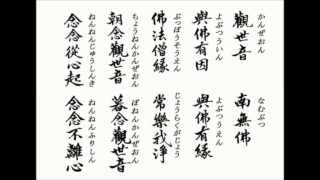 かんぜおん
觀世音
なむぶつ
南無佛
よぶつういん
與佛有因
よぶつうえん
與佛有緣
ぶっぽうそうえん
佛法僧緣
じょうらくがじょう
常樂我淨
ちょうねんかんぜおん
朝念觀世音
ぼねんかんぜおん
暮念觀世音
ねんねんじゅうしんき
念念從心起
ねんねんふりしん
念念不離心